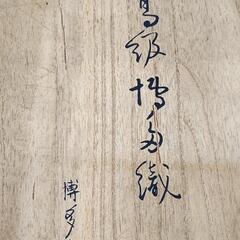 高級博多織
博多